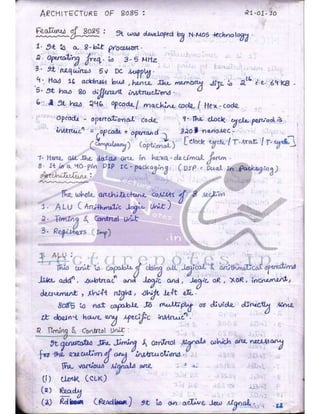 ARCHITECTURE OF 8085 :
21-01-20
Features of 8085 : It was developed by N-MOS technology
1. It is a 8-bit processor.
2. operating freq. is 3-5 MHz
3. It requires 5v DC supply
4. Has 16 address bus, hence the memory size is 2^16 i.e 64KB
5. It has 80 different instructions
6. It has 246 opcode / machine code / Hex-code
opcode - operational code
9. The clock cycle period is
instruc^n = opcode + operand
320 nanosec.
(compulsory) (optional)
[clock cycle / T-state / T-cycle]
7. Here all the datas are in hexa-decimal form
8. It is a 40-pin DIP IC-packaging. (DIP - Dual in Packaging)
Architecture :
The whole architecture consists of 3 section
1. ALU (Arithmetic Logic Unit)
2. Timing & Control Unit
3. Registers (Imp)
Lecturenotes.in
1. ALU :
This unit is capable of doing all logical & arithmetical operations
like add^n, subtrac^n and logic and, logic OR, XOR, increment,
decrement, shift right, shift left etc
8085 is not capable to multiply or divide directly since
it doesn't have any specific instruc^n.
2. Timing & Control Unit :
It generates the timing & control signals which are necessary
for the execution of any instructions.
The various signals are
(1) Clock (CLK)
(2) Ready
(3) Rdbar (Readbar) It is an active low signal.